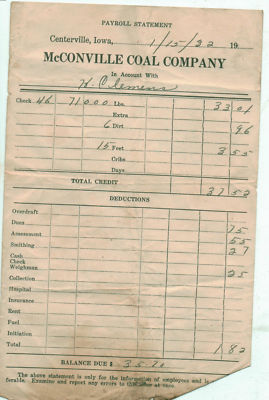 PAYROLL STATEMENT
Centerville, Iowa, 1/15/32 19
McCONVILLE COAL COMPANY
In Account With
H. Clemens
Check 46 71000 Lbs. 33 01
Extra
6 Dirt 96
15 Feet 3 55
Cribs
Days
TOTAL CREDIT 37 52
DEDUCTIONS
Overdraft
Dues 75
Assessment 55
Smithing 27
Cash
Check
Weighman 25
Collection
Hospital
Insurance
Rent
Fuel
Initiation
Total 1 82
BALANCE DUE $ 35.70
The above statement is only for the information of employees and is
ferable. Examine and report any errors to